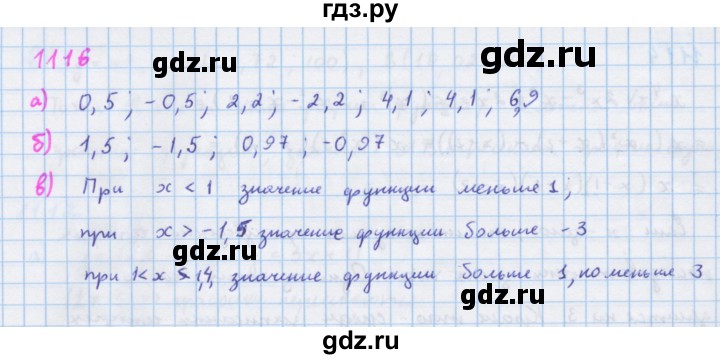 гдз.ру
1116
а) 0,5; -0,5; 2,2; -2,2; 4,1; 4,1; 6,9
б) 1,5; -1,5; 0,97; -0,97
в) При x < 1 значение функции меньше 1;
при x > -1,5 значение функции больше -3
при 1 < x < 1,4 значение функции больше 1, но меньше 3
gdz.ru
gdz.ru
gdz.ru
gdz.ru
gdz.ru
gdz.ru
gdz.ru